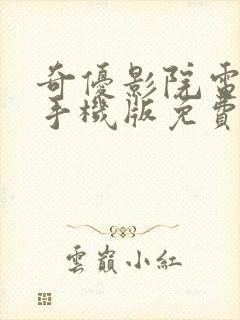 奇優影院電
手機版免費
雲巔小紅